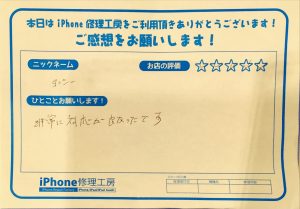 本日は iPhone 修理工房をご利用頂きありがとうございます!
ご感想をお願いします!
ニックネーム
お店の評価 ☆☆☆☆☆
ひとことお願いします!
非常に対応が良かったです
iPhone修理工房